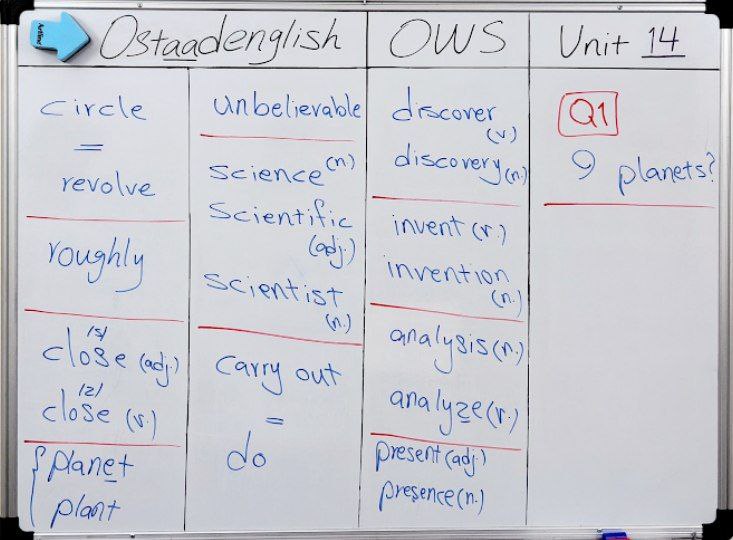 Ostaadenglish
OWS
Unit 14
circle
=
revolve
roughly
/s/
close (adj.)
/z/
close (v.)
{ planet
plant
unbelievable
science (n)
Scientific
(adj.)
scientist
(n.)
carry out
=
do
discover
(v.)
discovery (n.)
invent (v.)
invention
(n.)
analysis (n.)
analyze (v.)
present (adj.)
presence (n.)
Q1
9 planets?